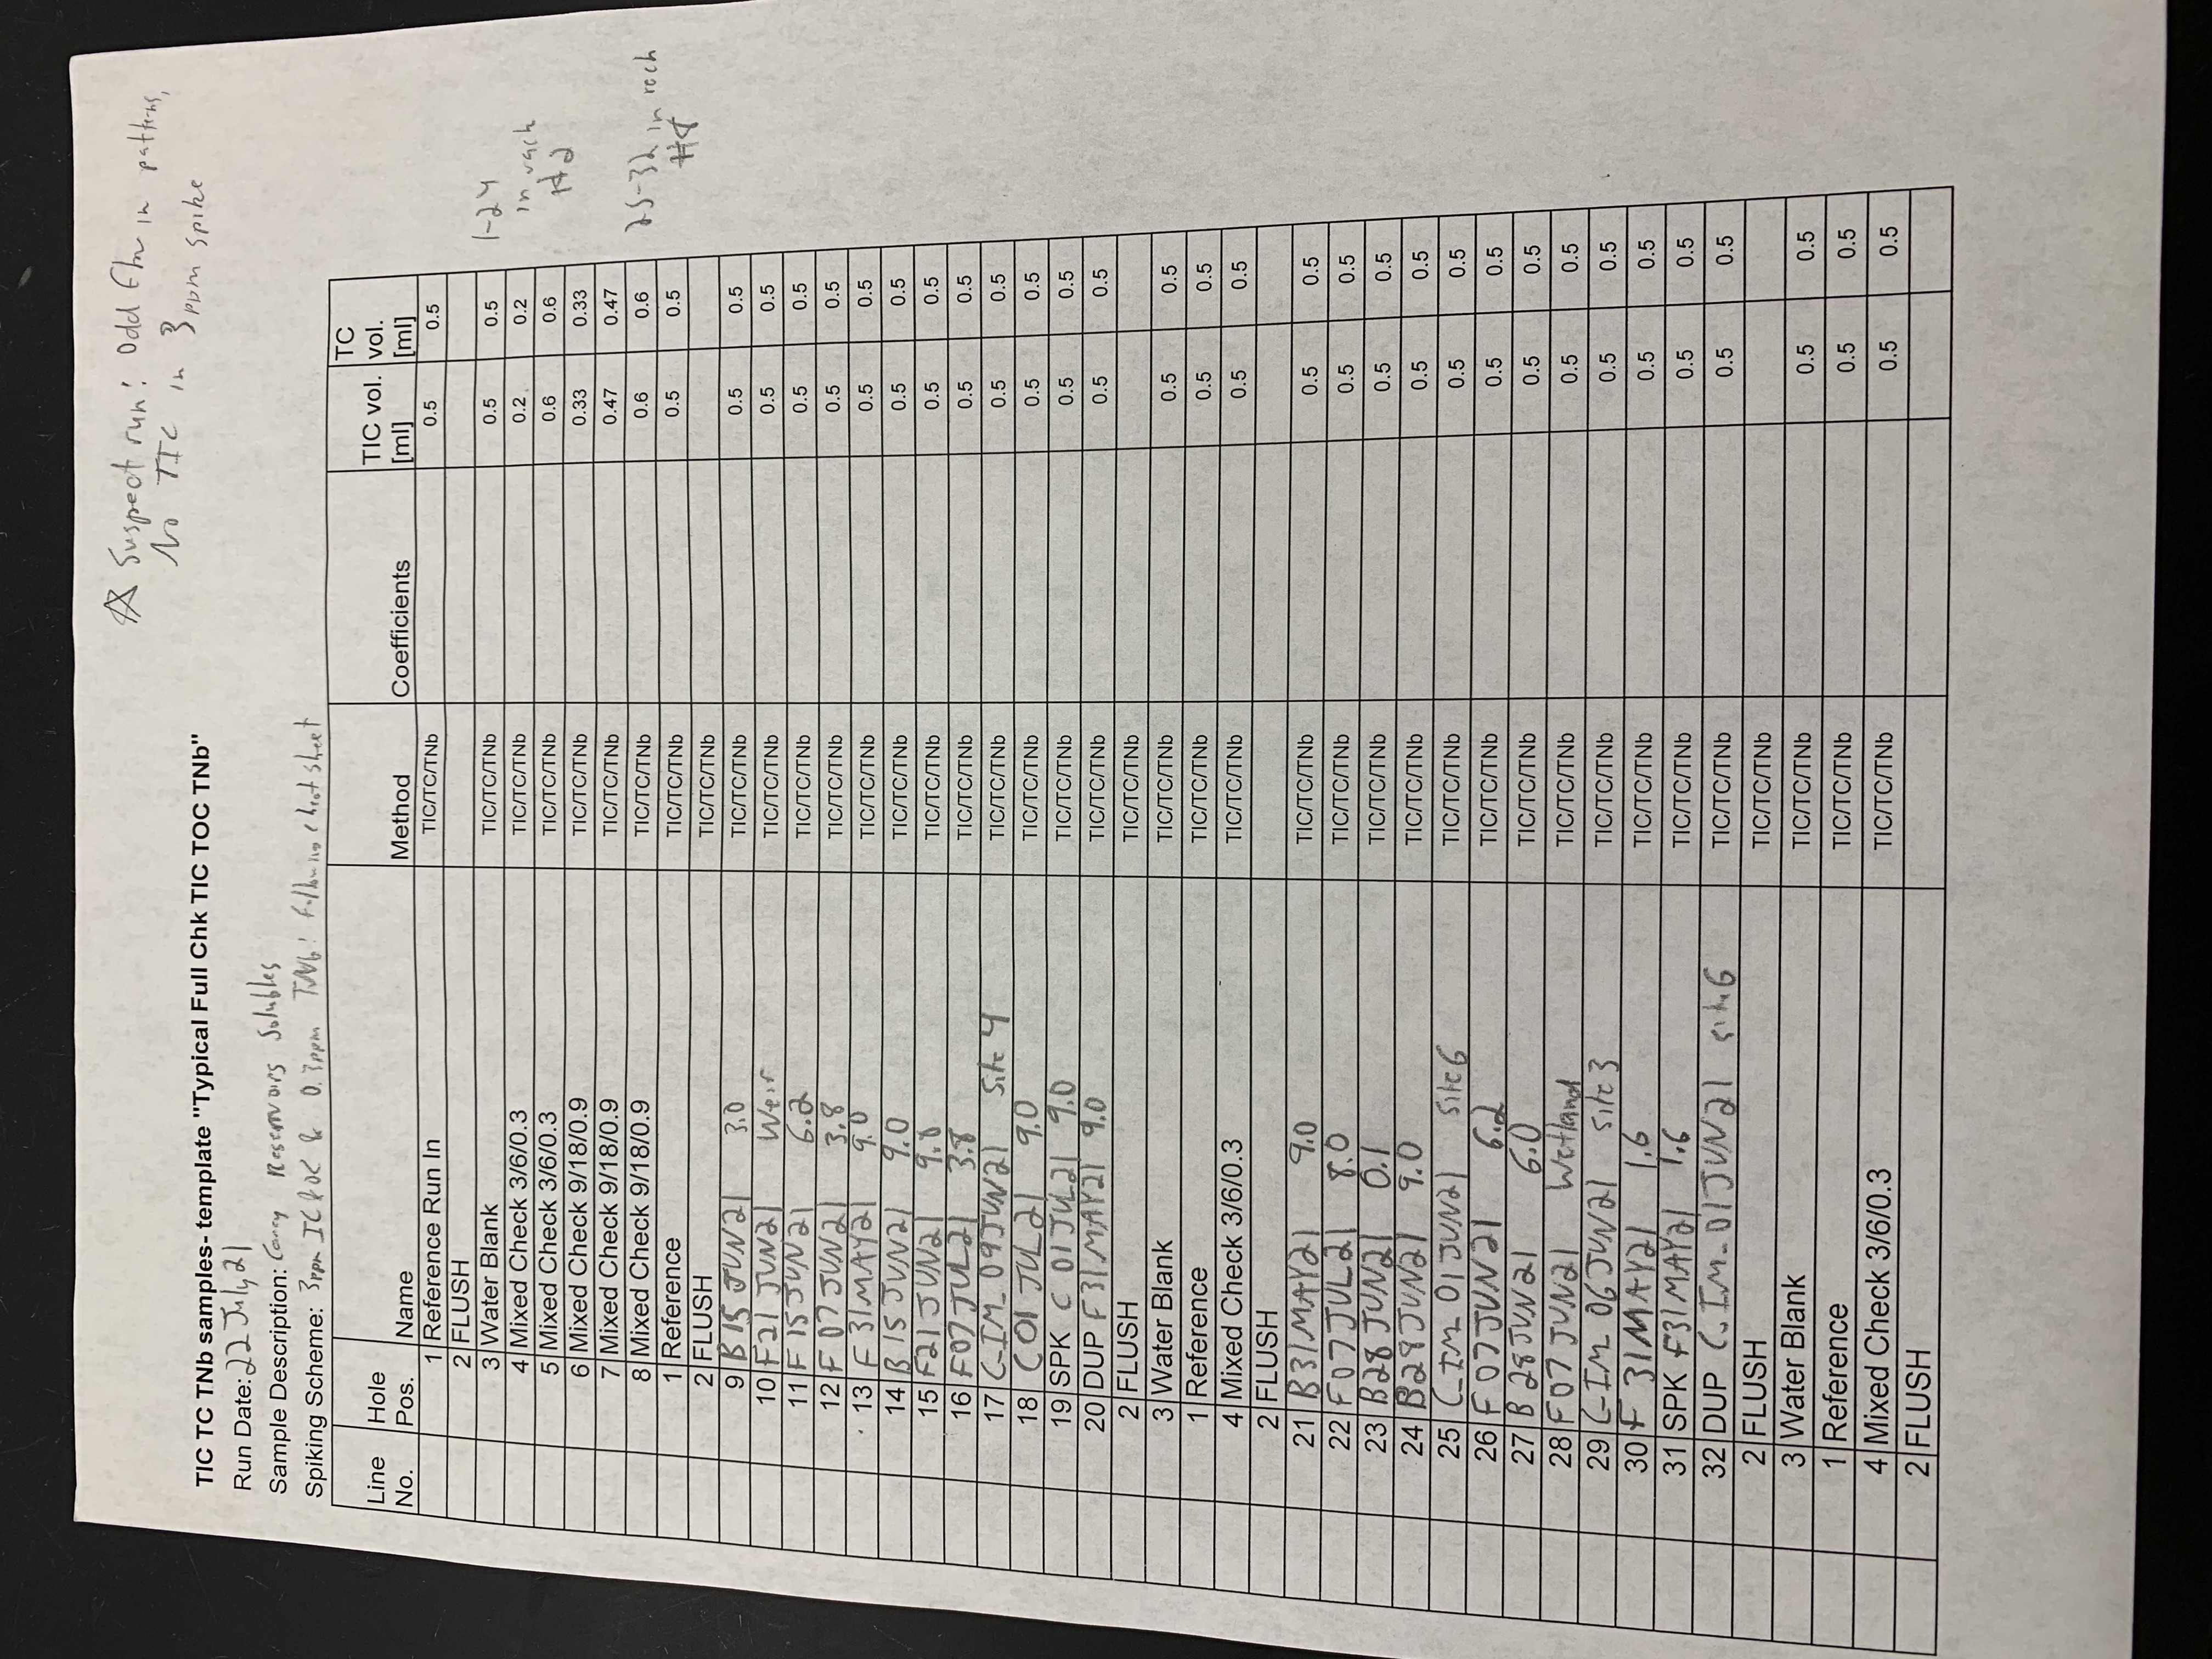 ☆ Suspect run! Odd flow in patterns,
No TIC in 3ppm spike
TIC TC TNb samples- template "Typical Full Chk TIC TOC TNb"
Run Date: 22 July 21
Sample Description: Carey Reservoirs Solubles
Spiking Scheme: 3ppm IC & OC & 0.3ppm TNb! Following cheat sheet
Line No. Hole Pos. Name Method Coefficients TIC vol. [ml] TC vol. [ml]
1 Reference Run In TIC/TC/TNb 0.5 0.5
2 FLUSH
3 Water Blank TIC/TC/TNb 0.5 0.5
1-24
in rack
#2
4 Mixed Check 3/6/0.3 TIC/TC/TNb 0.2 0.2
5 Mixed Check 3/6/0.3 TIC/TC/TNb 0.6 0.6
6 Mixed Check 9/18/0.9 TIC/TC/TNb 0.33 0.33
7 Mixed Check 9/18/0.9 TIC/TC/TNb 0.47 0.47
8 Mixed Check 9/18/0.9 TIC/TC/TNb 0.6 0.6
25-32 in rack
#8
1 Reference TIC/TC/TNb 0.5 0.5
2 FLUSH TIC/TC/TNb
9 B 15 JUN21 3.0 TIC/TC/TNb 0.5 0.5
10 F21 JUN21 Weir TIC/TC/TNb 0.5 0.5
11 F 15JUN21 6.2 TIC/TC/TNb 0.5 0.5
12 F 07 JUN21 3.8 TIC/TC/TNb 0.5 0.5
13 F 31MAY21 9.0 TIC/TC/TNb 0.5 0.5
14 B 15 JUN21 9.0 TIC/TC/TNb 0.5 0.5
15 F21 JUN21 9.8 TIC/TC/TNb 0.5 0.5
16 F07 JUL21 3.8 TIC/TC/TNb 0.5 0.5
17 C-IM_09JUN21 Site 4 TIC/TC/TNb 0.5 0.5
18 C01 JUL21 9.0 TIC/TC/TNb 0.5 0.5
19 SPK C 01JUL21 9.0 TIC/TC/TNb 0.5 0.5
20 DUP F31MAY21 9.0 TIC/TC/TNb 0.5 0.5
2 FLUSH TIC/TC/TNb
3 Water Blank TIC/TC/TNb 0.5 0.5
1 Reference TIC/TC/TNb 0.5 0.5
4 Mixed Check 3/6/0.3 TIC/TC/TNb 0.5 0.5
2 FLUSH
21 B31MAY21 9.0 TIC/TC/TNb 0.5 0.5
22 F07JUL21 8.0 TIC/TC/TNb 0.5 0.5
23 B28 JUN21 0.1 TIC/TC/TNb 0.5 0.5
24 B28JUN21 9.0 TIC/TC/TNb 0.5 0.5
25 C-IM_01JUN21 Site6 TIC/TC/TNb 0.5 0.5
26 F 07JUN21 6.2 TIC/TC/TNb 0.5 0.5
27 B 28JUN21 6.0 TIC/TC/TNb 0.5 0.5
28 F07 JUN21 Wetland TIC/TC/TNb 0.5 0.5
29 C-IM_06JUN21 Site 3 TIC/TC/TNb 0.5 0.5
30 F 31MAY21 1.6 TIC/TC/TNb 0.5 0.5
31 SPK F31MAY21 1.6 TIC/TC/TNb 0.5 0.5
32 DUP C-IM-01JUN21 site6 TIC/TC/TNb 0.5 0.5
2 FLUSH TIC/TC/TNb
3 Water Blank TIC/TC/TNb 0.5 0.5
1 Reference TIC/TC/TNb 0.5 0.5
4 Mixed Check 3/6/0.3 TIC/TC/TNb 0.5 0.5
2 FLUSH